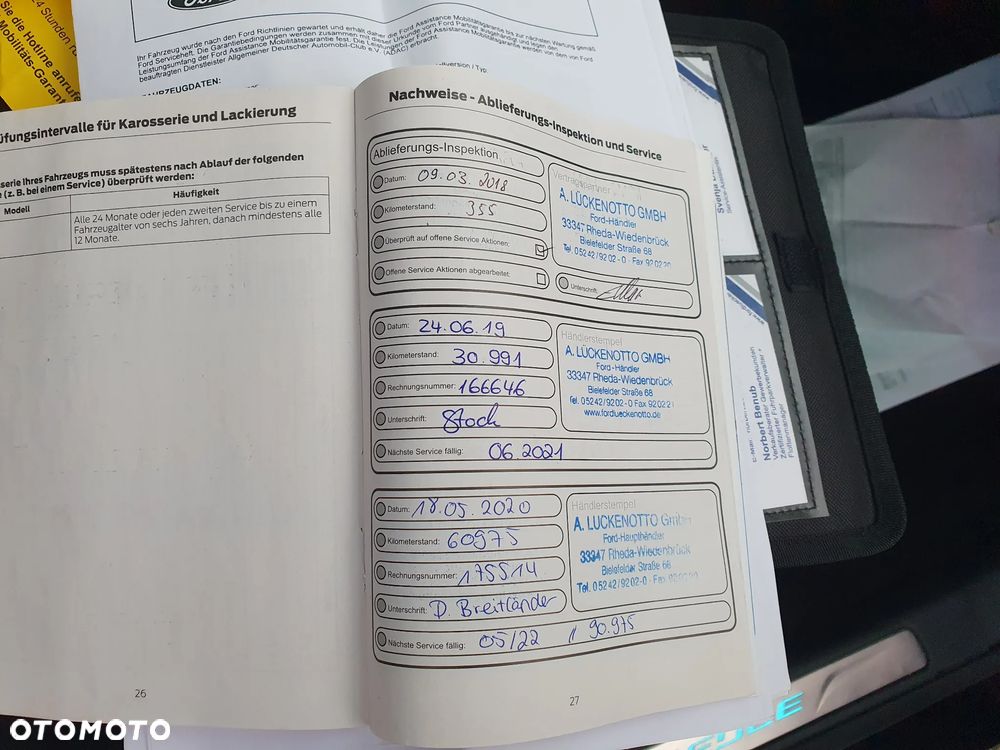 Sie die Hotline anrufen
Mobilitäts-Garan
Ihr Fahrzeug wurde nach den Ford Richtlinien gewartet und erhält daher die Ford Assistance Mobilitätsgarantie bis zur nächsten Wartung gemäß
Ford Serviceheft. Die Garantiebedingungen werden zusammen mit dieser Urkunde vom Ford Partner ausgehändigt und legen den
Leistungsumfang der Ford Assistance Mobilitätsgarantie fest. Die Leistungen der Ford Assistance Mobilitätsgarantie werden von dem von Ford
beauftragten Dienstleister Allgemeiner Deutscher Automobil-Club e.V. (ADAC) erbracht.
version / Typ:
FAHRZEUGDATEN:
üfungsintervalle für Karosserie und Lackierung
serie Ihres Fahrzeugs muss spätestens nach Ablauf der folgenden
e (z. B. bei einem Service) überprüft werden:
Modell
Häufigkeit
Alle 24 Monate oder jeden zweiten Service bis zu einem
Fahrzeugalter von sechs Jahren, danach mindestens alle
12 Monate.
26
Nachweise - Ablieferungs-Inspektion und Service
Ablieferungs-Inspektion
Datum: 09.03.2018
Kilometerstand: 355
Überprüft auf offene Service Aktionen:
Offene Service Aktionen abgearbeitet:
Vertragspartner
A. LÜCKENOTTO GMBH
Ford-Händler
33347 Rheda-Wiedenbrück
Bielefelder Straße 68
Tel. 05242/9202-0 · Fax 920220
Unterschrift:
Datum: 24.06.19
Kilometerstand: 30.991
Rechnungsnummer: 166646
Unterschrift: Stock
Nächste Service fällig: 06.2021
Händlerstempel
A. LÜCKENOTTO GMBH
Ford-Händler
33347 Rheda-Wiedenbrück
Bielefelder Straße 68
Tel. 05242/9202-0 Fax 920221
www.fordlueckenotto.de
Datum: 18.05.2020
Kilometerstand: 60975
Rechnungsnummer: 175514
Unterschrift: D. Breitländer
Nächste Service fällig: 05/22 // 90.975
Händlerstempel
A. LÜCKENOTTO GmbH
Ford-Haupthändler
33347 Rheda-Wiedenbrück
Bielefelder Straße 68
Tel. 05242/9202-0 · Fax
27
Svenja
Service-Assistentin
Norbert Benub
Verkaufsberater Gewerbekunden
Zertifizierter Fuhrparkverwalter +
Flottenmanager
OTOMOTO